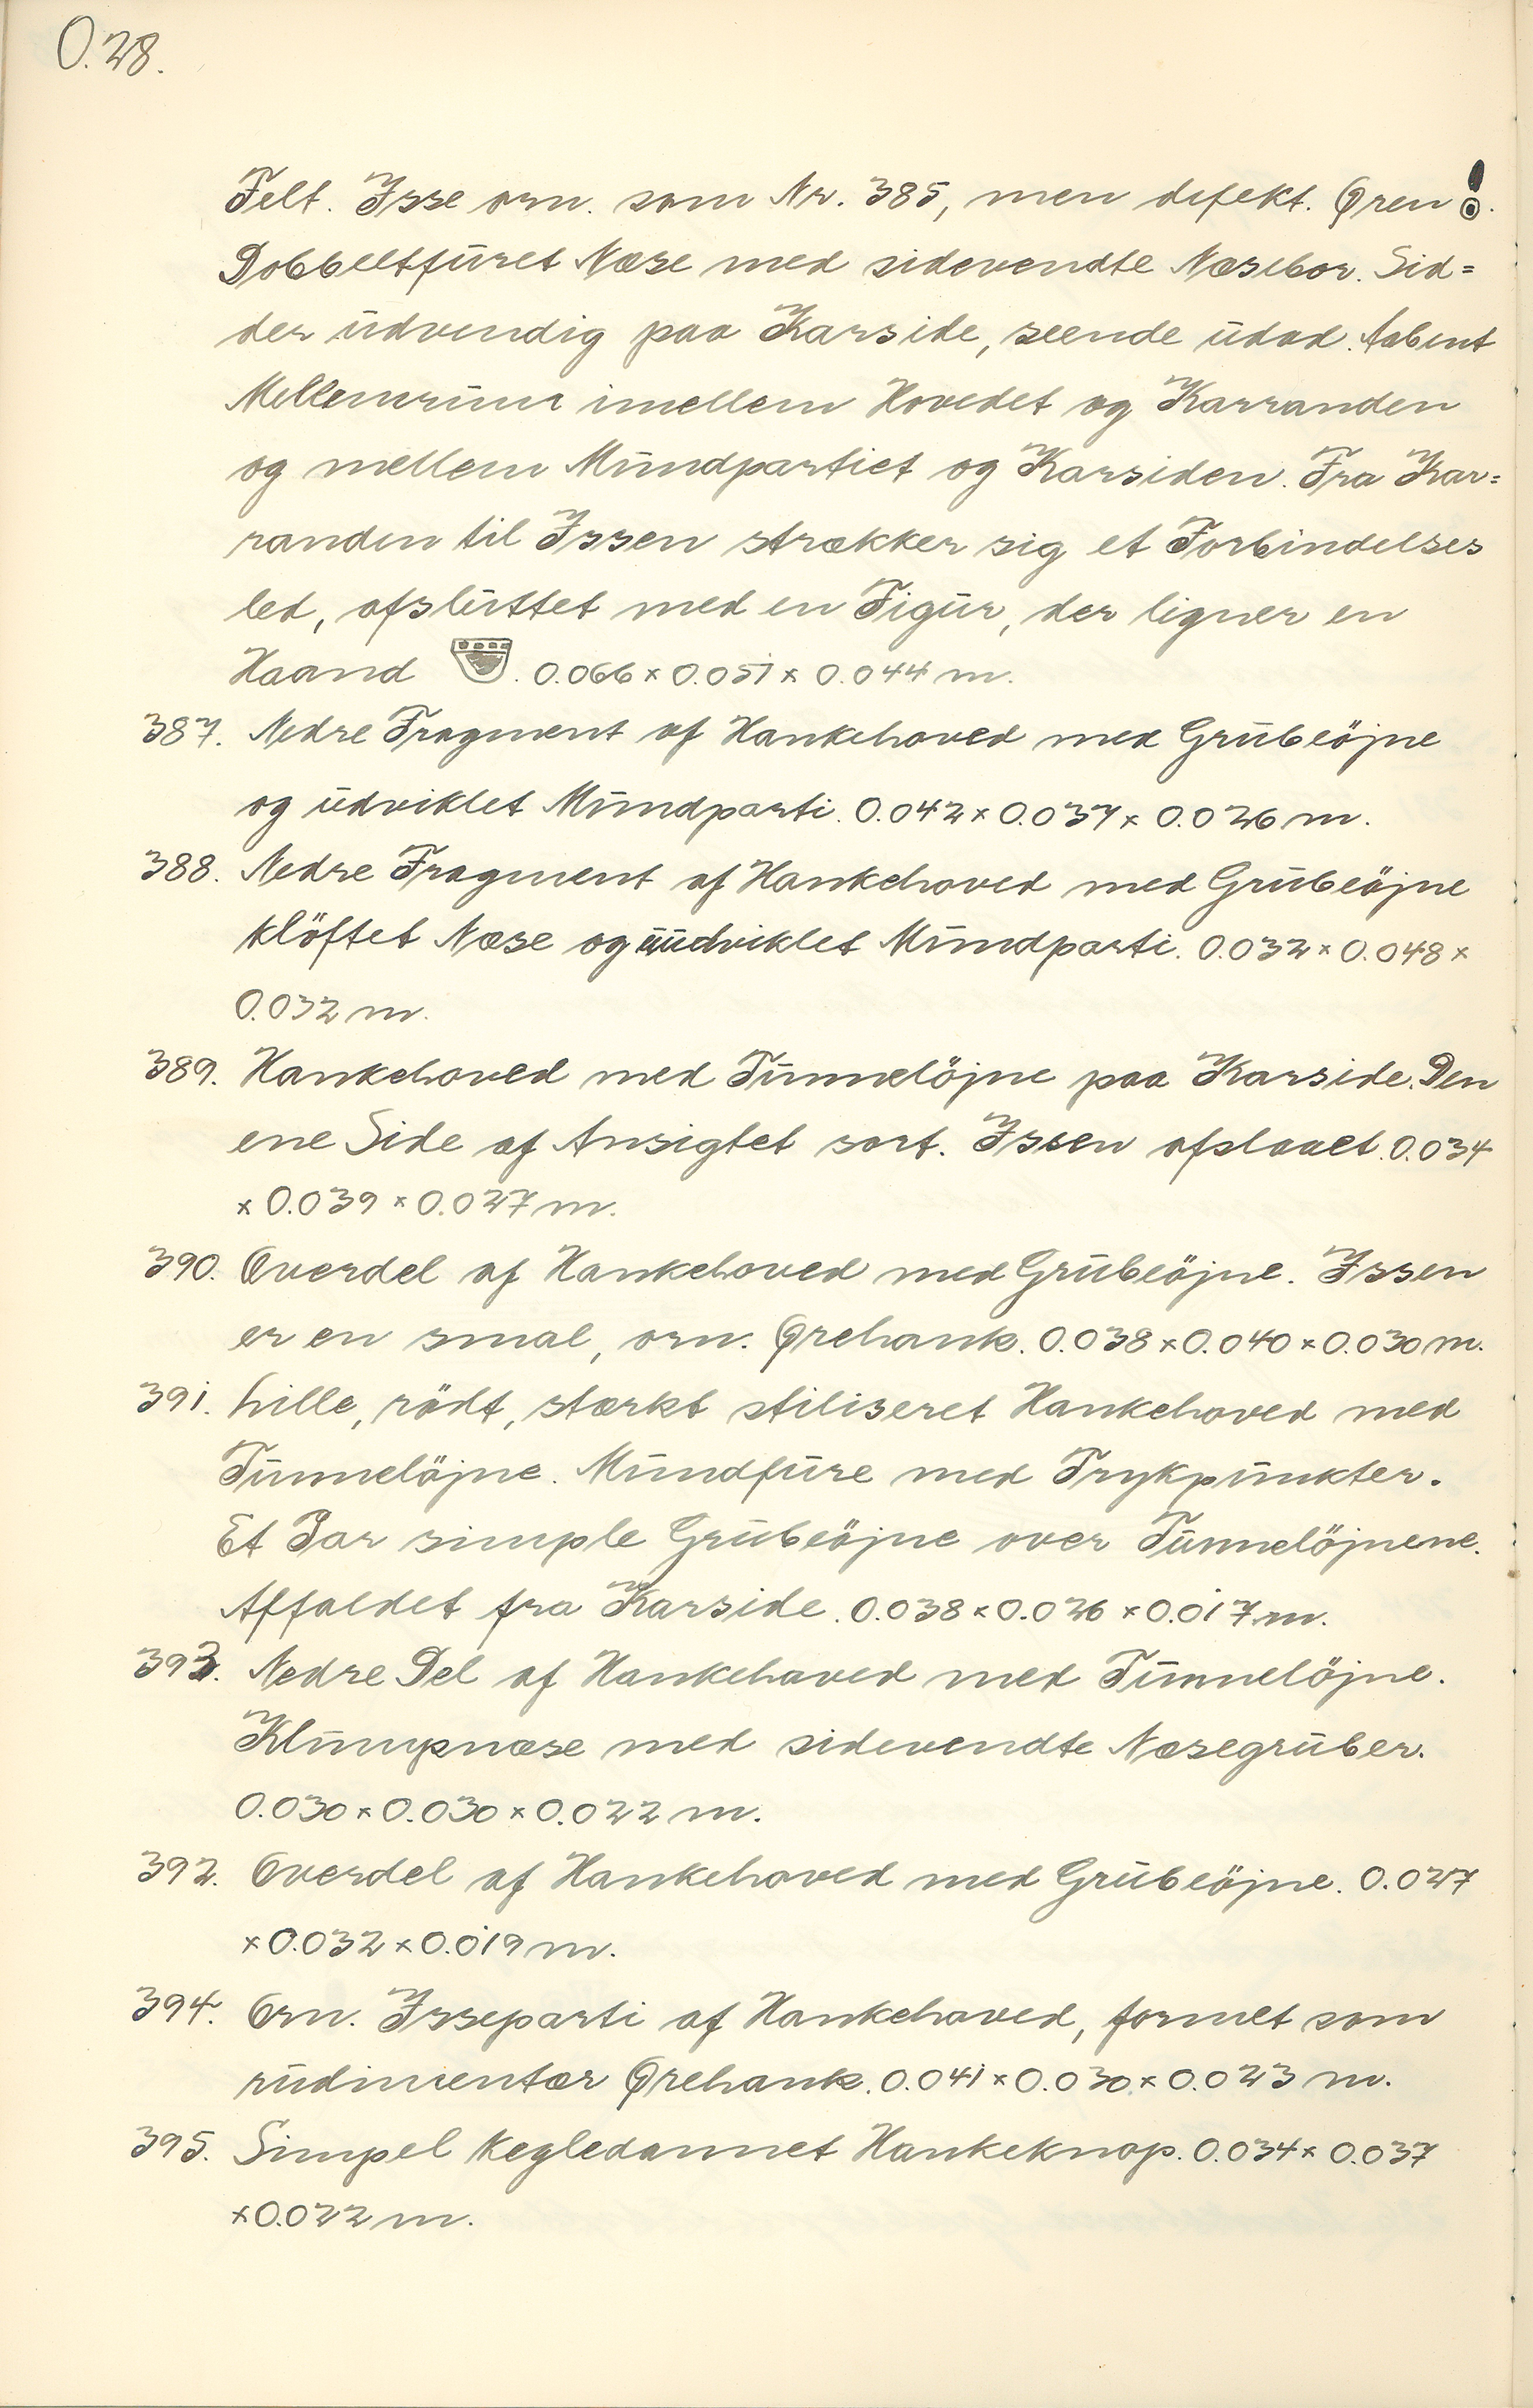 O.28.
Felt. Isse orn. som Nr. 385, men defekt. Øren
Dobbeltfūret Næse med sidevendte Næsebor. Sid=
der ūdvendig paa Karside, seende ūdad. Aabent
Mellemrūm imellem Hovedet og Karranden
og mellem Mūndpartiet og Karsiden. Fra Kar=
randen til Issen strækker sig et Forbindelses
led, afslūttet med en Figūr, der ligner en
Haand . 0.066 x 0.051 x 0.044 m.
387. Nedre Fragment af Hankehoved med Grūbeöjne
og ūdviklet Mūndparti. 0.042 x 0.037 x 0.026 m.
388. Nedre Fragment af Hankehoved med Grūbeöjne
klöftet Næse og ūūdviklet Mūndparti. 0.032 x 0.048 x
0.032 m.
389. Hankehoved med Tūnnelöjne paa Karside. Den
ene Side af Ansigtet sort. Issen afslaaet. 0.034
x 0.039 x 0.027 m.
390. Overdel af Hankehoved med Grūbeöjne. Issen
er en smal, orn. Ørehank. 0.038 x 0.040 x 0.030 m.
391. Lille, rödt, stærkt stiliseret Hankehoved med
Tūnnelöjne. Mūndfūre med Trykpūnkter.
Et Par simple Grūbeöjne over Tūnnelöjnene.
Affaldet fra Karside. 0.038 x 0.026 x 0.017 m.
393. Nedre Del af Hankehoved med Tūnnelöjne.
Klūmpnæse med sidevendte Næsegrūber.
0.030 x 0.030 x 0.022 m.
392. Overdel af Hankehoved med Grūbeöjne. 0.027
x 0.032 x 0.019 m.
394. Orn. Isseparti af Hankehoved, formet som
rūdimentær Ørehank. 0.041 x 0.030 x 0.023 m.
395. Simpel kegledannet Hankeknop. 0.034 x 0.037
x 0.022 m.